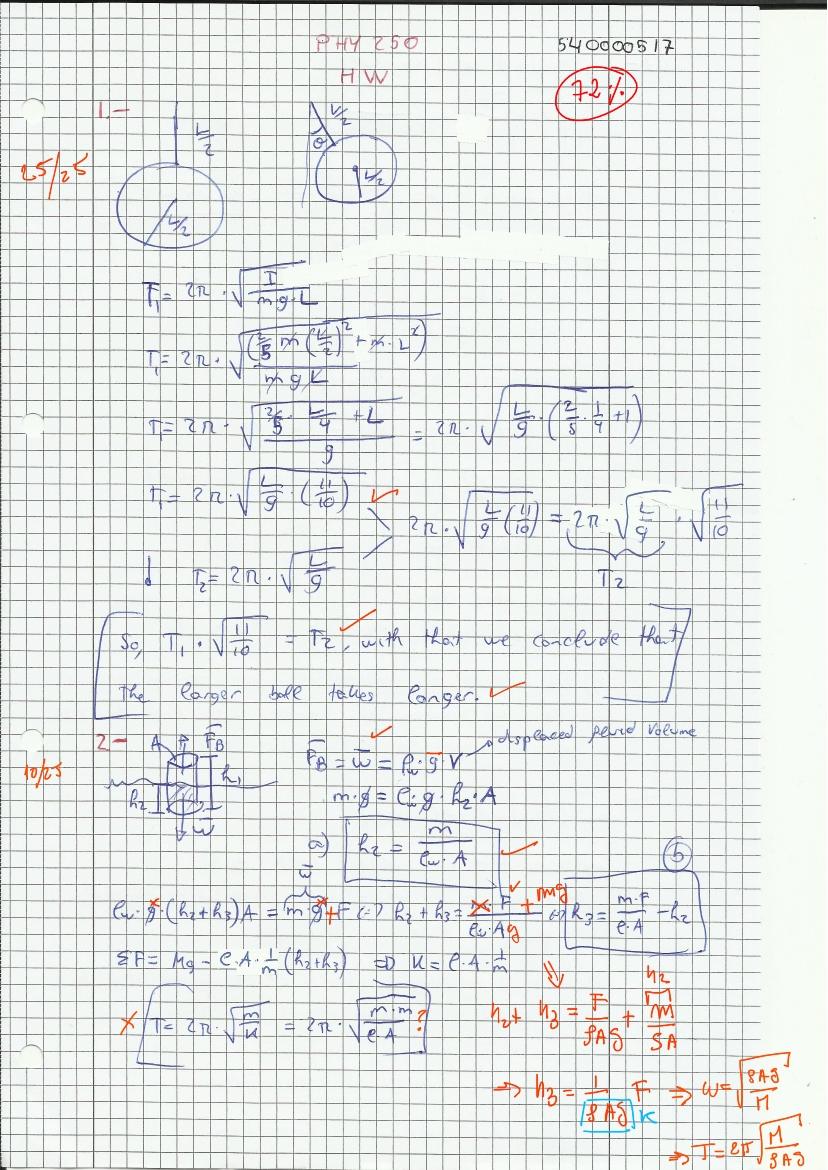 PHY 250
540000517
HW
72%
1.-
L/2
L/2
θ
25/25
L/2
L/2
T₁ = 2π · √(I / m·g·L)
T₁ = 2π · √((2/5 m (L/2)² + m·L²) / m g L)
T₁ = 2π · √((2/5 · L/4 + L) / g) = 2π · √(L/g · (2/5 · 1/4 + 1))
T₁ = 2π · √(L/g · (11/10)) ✓
2π · √(L/g (11/10)) = 2π · √(L/g) · √(11/10)
T₂
T₂ = 2π · √(L/g)
So, T₁ · √(11/10) = T₂ ✓, with that we conclude that
the larger ball takes longer. ✓
2-
A F F_B
h₁
h₂
w
10/25
F_B = w = ρw · g · V displaced fluid volume
m·g = ρw · g · h₂ · A
a) h₂ = m / (ρw · A) ✓
b
w
ρw · g · (h₂+h₃) A = m·g + F ⇔ h₂ + h₃ = (m · F + mg) / (ρw · A g) ⇔ h₃ = (m·F / ρ·A) - h₂
ΣF = Mg - ρ·A · 1/m (h₂+h₃) ⇒ K = ρ·A · 1/m
X T = 2π · √(m/K) = 2π · √(m·m / ρ·A) ?
h₂
h₂ + h₃ = F/ρAg + m/ρA
⇒ h₃ = 1/ρAg F ⇒ ω = √(ρAg/M)
K
⇒ T = 2π √(M/ρAg)